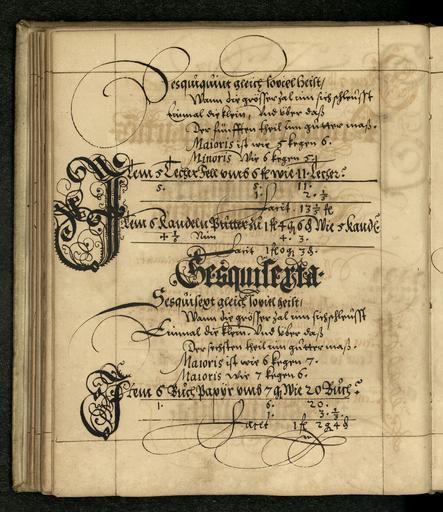 Sesquiquint gleich soviel heist/
Wann die grösser zal inn sich schleusst
Einmal die klein, Und über daß
Der fünfften theil inn gutter maß.
Maioris ist wie 5 kegen 6.
Minoris Wie 6 kegen 5
Item 5 Fell umb 6 fl wie 11
5. 5. 11.
1. 2 1/5
Facit 13 1/5 fl
Item 6 Kandeln Butter zu 1 fl 4 g 6 d Wie 5 Kand:
4 1/2 Nim 4. 3.
Facit 1 fl 0 g 3 d.
Sesquisexta.
Sesquisext gleich soviel heist/
Wann die grösser zal inn sich schleusst
Einmal die klein. Und über daß
Der sechsten theil inn gutter maß.
Maioris ist wie 6 kegen 7.
Maioris Wie 7 kegen 6.
Item 6 Buch Papyr umb 7 g Wie 20 Buch?
1. 6. 20.
1. 3 1/3
Facit 1 fl 2 g 4 d